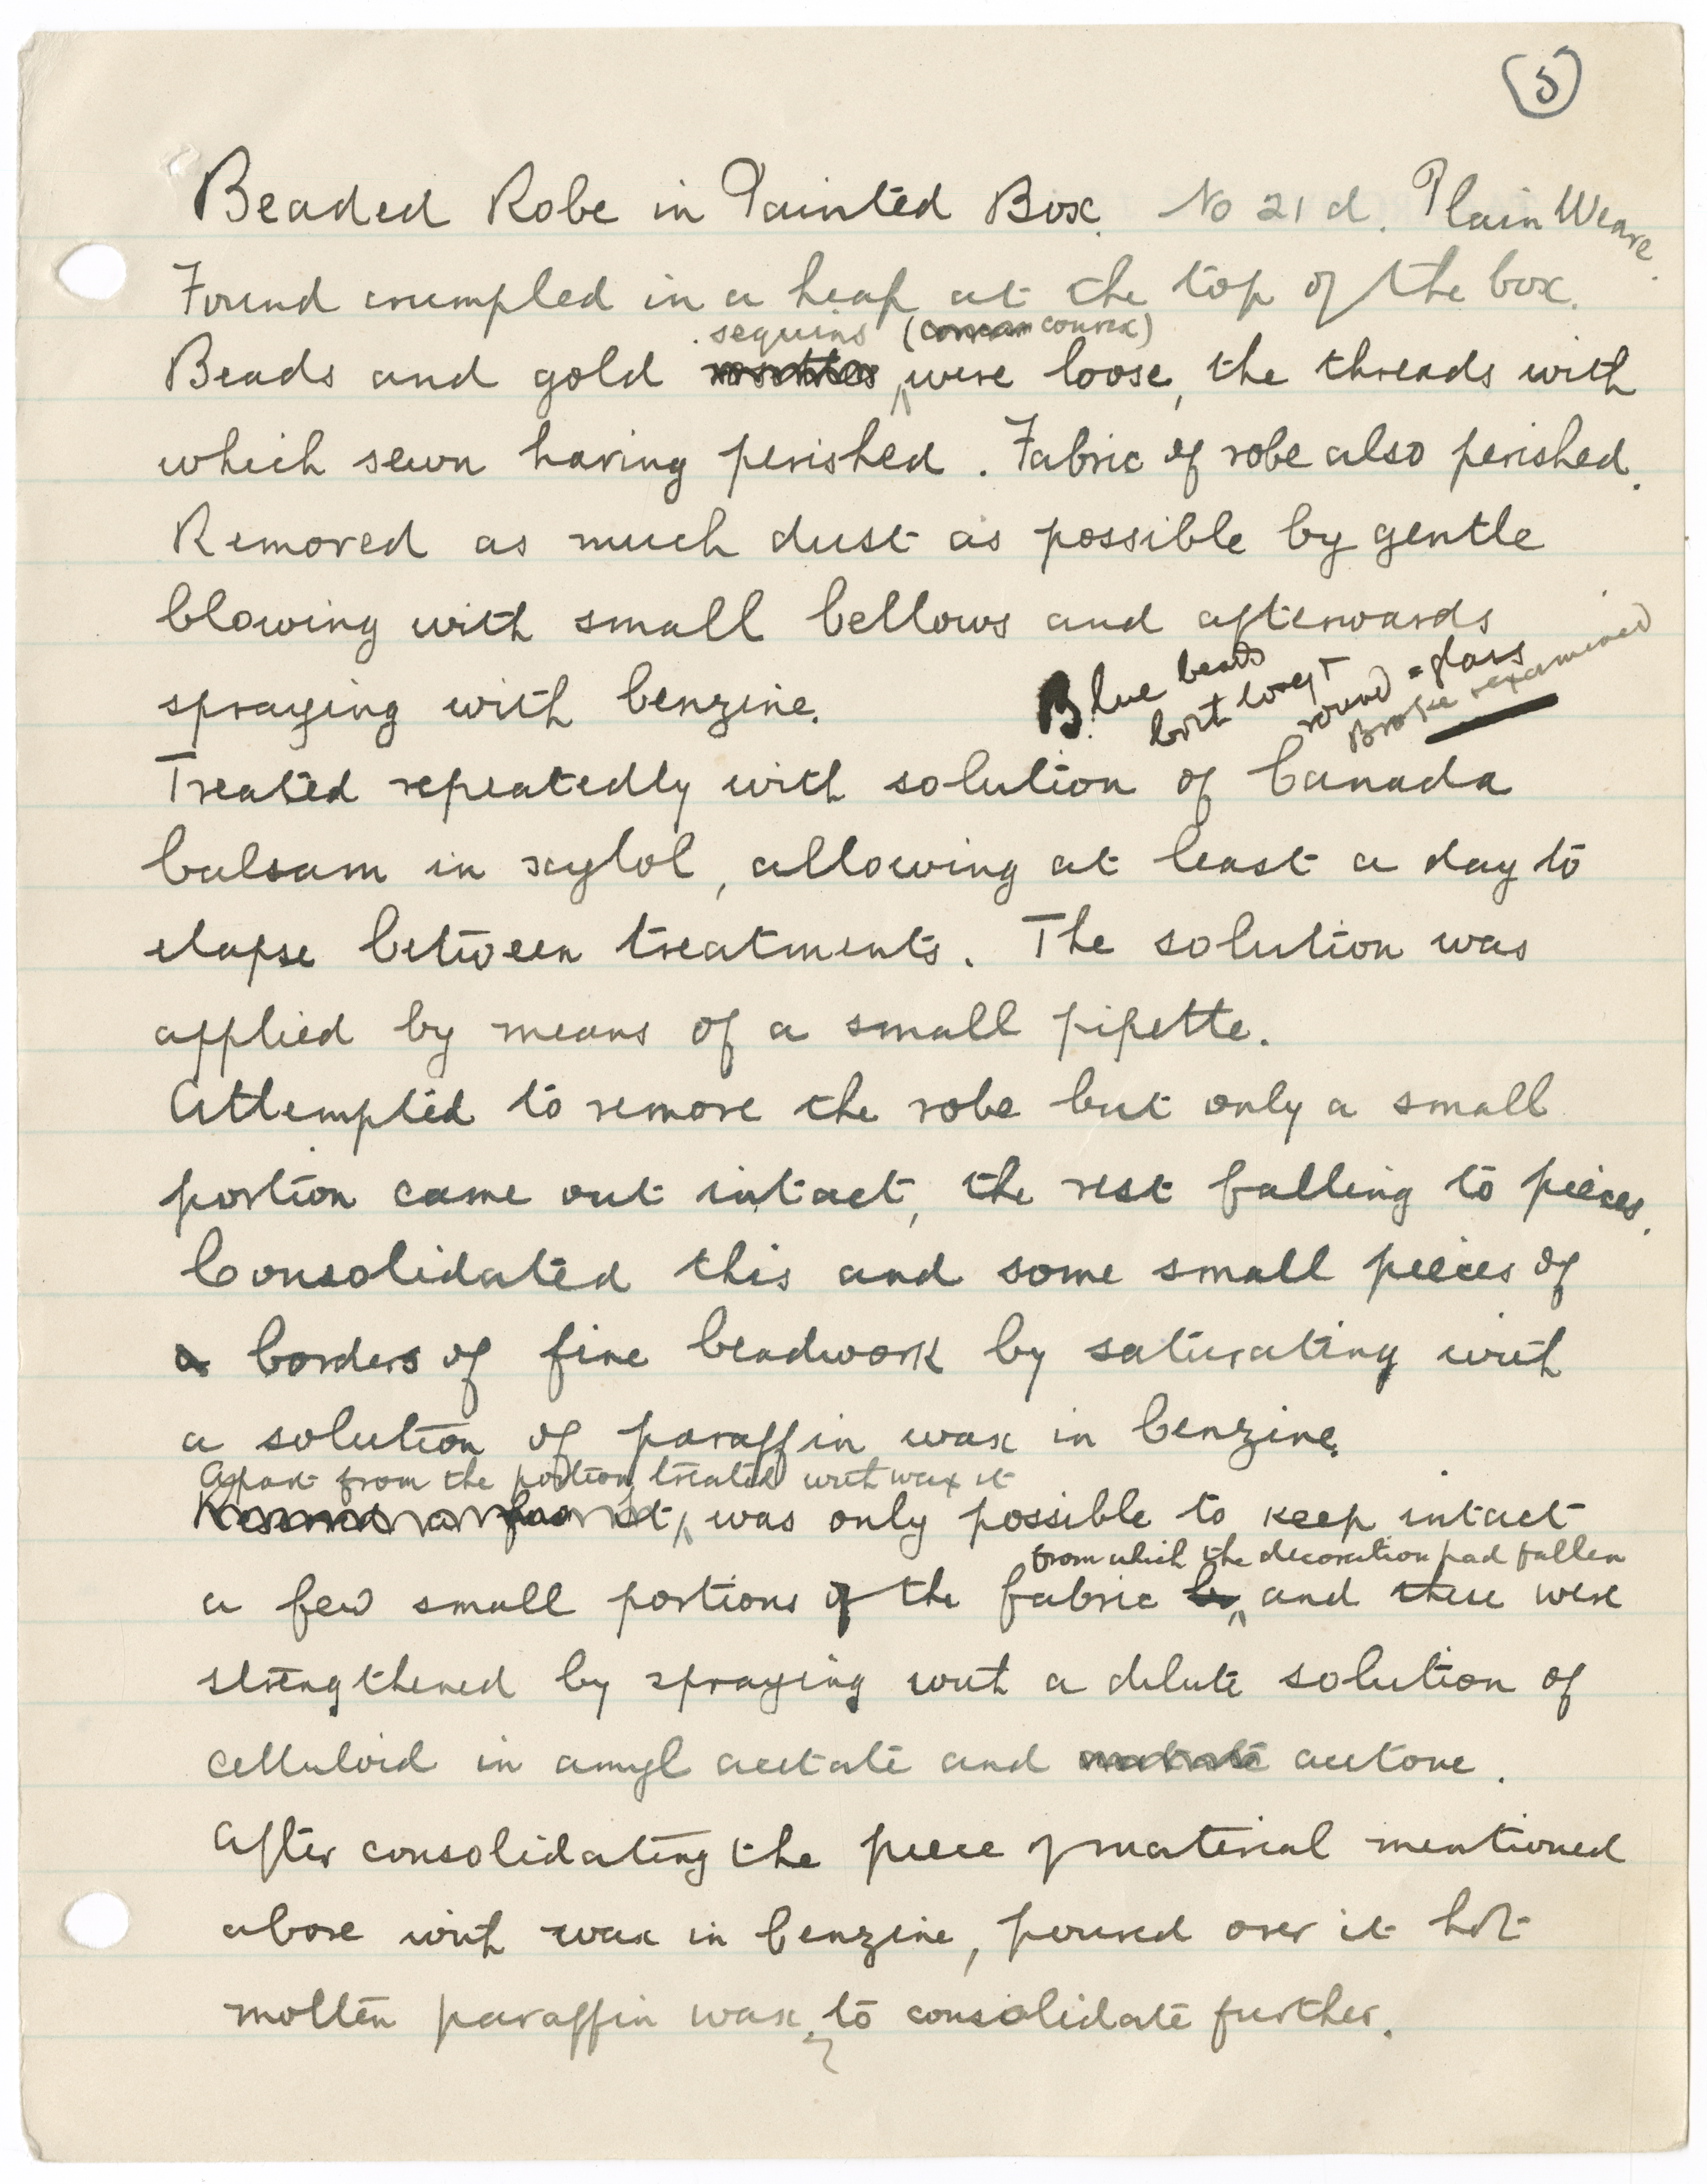 5
Beaded Robe in Painted Box. No 21 d. Plain Weave.
Found crumpled in a heap at the top of the box.
sequins (convex)
Beads and gold were loose, the threads with
which sewn having perished. Fabric of robe also perished.
Removed as much dust as possible by gentle
blowing with small bellows and afterwards
spraying with benzine.
Blue beads
both long &
round = glass
Broke & examined
Treated repeatedly with solution of Canada
balsam in xylol, allowing at least a day to
elapse between treatments. The solution was
applied by means of a small pipette.
Attempted to remove the robe but only a small
portion came out intact, the rest falling to pieces.
Consolidated this and some small pieces of
a borders of fine beadwork by saturating with
a solution of paraffin wax in benzine.
Apart from the portion treated with wax it
was only possible to keep intact
from which the decoration had fallen
a few small portions of the fabric and these were
strengthened by spraying with a dilute solution of
celluloid in amyl acetate and acetone.
After consolidating the piece of material mentioned
above with wax in benzine, poured over it hot
molten paraffin wax, to consolidate further.